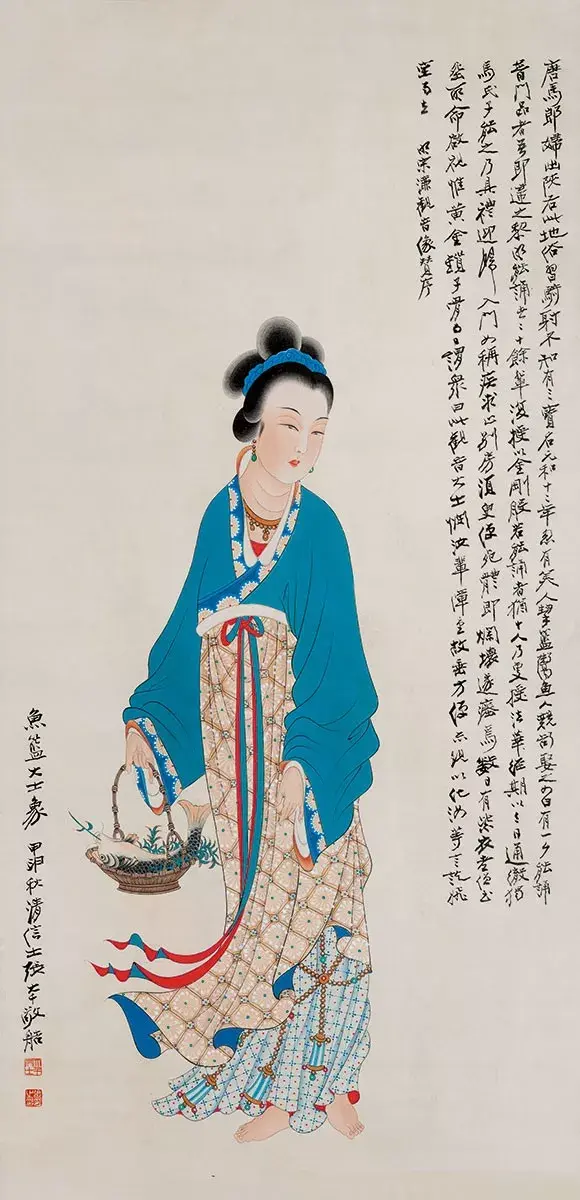 唐馬郎婦出陝右此地俗習騎射不知有三寶名元和十二年忽有美人挈籃鬻魚人競欲娶之女曰有一夕能誦
普門品者吾即適之黎明能誦者二十餘輩復授以金剛般若能誦者猶十人乃更授法華經期以三日通徹獨
馬氏子能之乃具禮迎歸入門女稱疾求止別房須臾便死體即爛壞遂瘞焉數日有紫衣老僧至
瘞所命啟視惟黃金鎖子骨謂眾曰此觀音大士憫汝輩障重故垂方便示現以化汝等言訖飛
空而去 明宋濂觀音像贊序
魚籃大士象 甲申秋清信士張大千敬